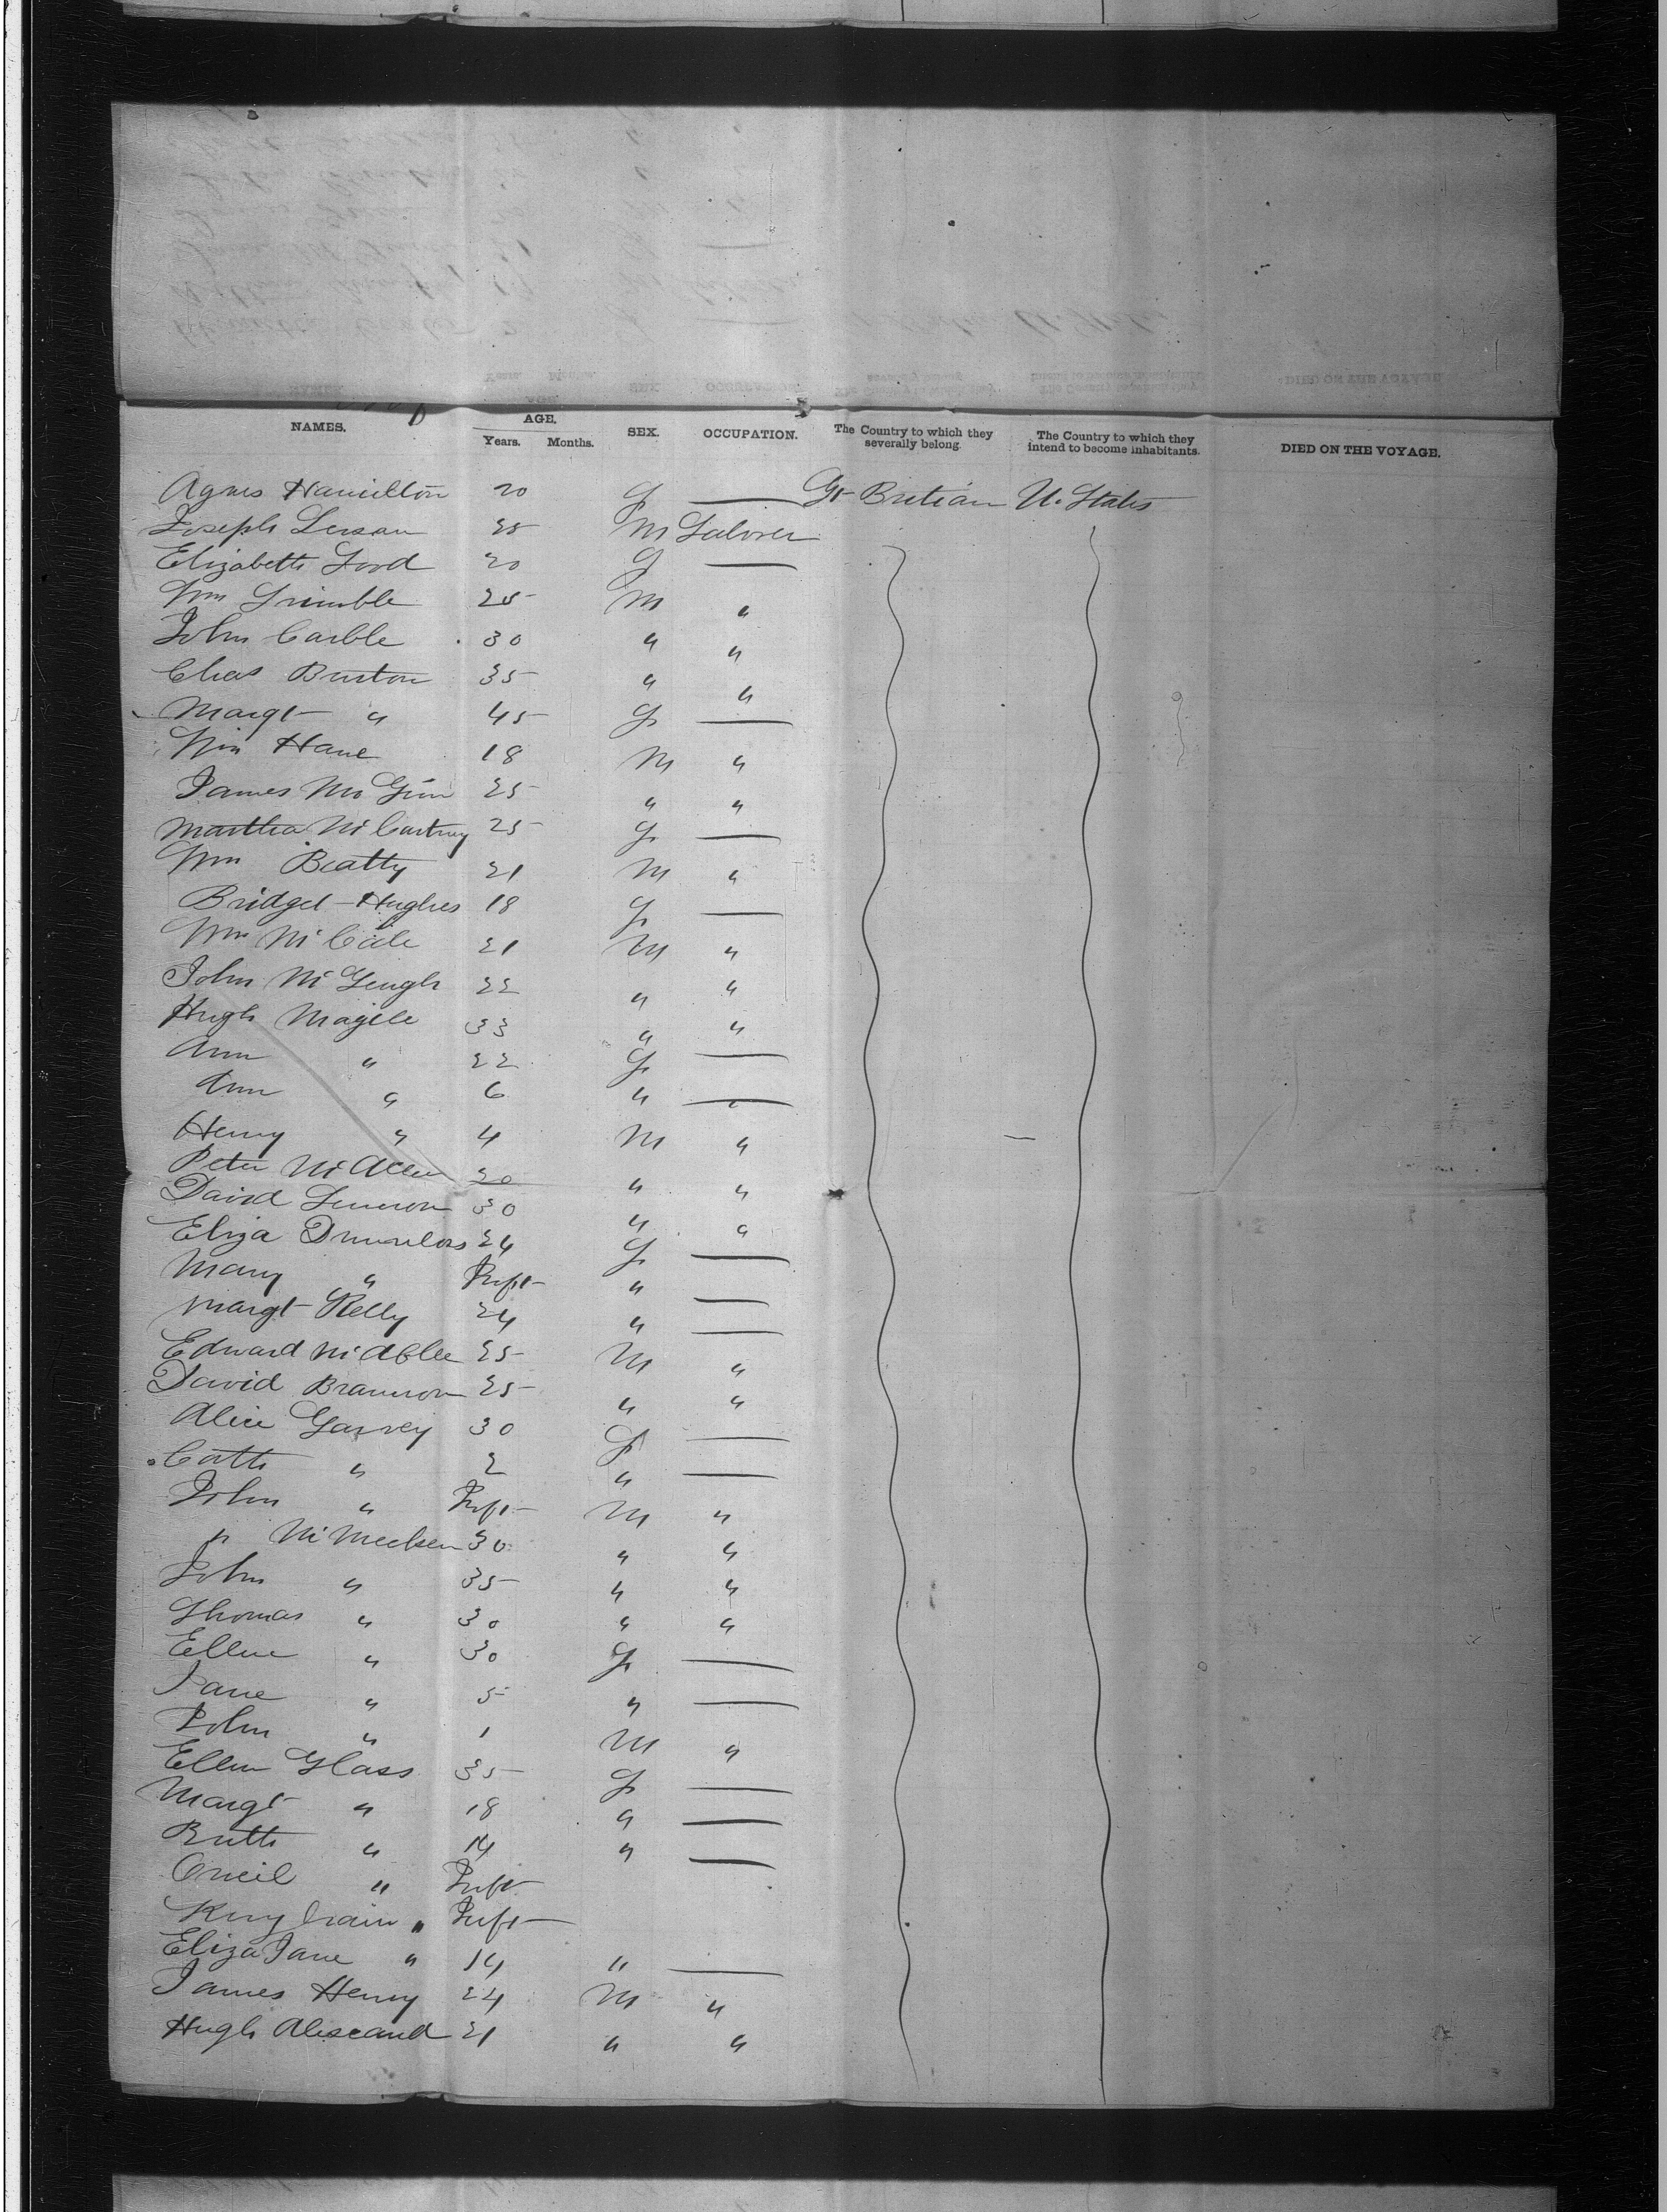 NAMES. AGE. Years. Months. SEX. OCCUPATION. The Country to which they severally belong. The Country to which they intend to become inhabitants. DIED ON THE VOYAGE.
Agnes Hamilton 20 f — Gt Britian U. States
Joseph 25 M Laborer
Elizabeth Ford 20 f —
Wm Trimble 25 M "
John Carble 30 " "
Chas Burton 35 " "
Margt " 45 f —
Wm Hane 18 M "
James Mc Ginn 25 " "
Martha Mc Cartney 25 f —
Wm Beatty 21 M "
Bridget Hughes 18 f —
Wm Mc Cale 21 M "
John Mc Gengh 22 " "
Hugh Magile 33 " "
Ann " 22 f —
Ann " 6 " —
Henry " 4 M "
Peter Mc Aleer 20 " "
David Lennon 30 " "
Eliza 24 f —
Mary " Inft " —
Margt Kelly 24 " —
Edward Mc Ablee 25 M "
David Brannon 25 " "
Alice Garvey 30 f —
Cath " 2 " —
John " Inft M "
" Mc Meeken 30 " "
John " 35 " "
Thomas " 30 " "
Ellen " 30 f —
Jane " 5 " —
John " 1 M "
Ellen Glass 35 f —
Margt " 18 " —
Ruth " 14 " —
Oneil " Inft
" Inft
Eliza Jane " 14 " —
James Henry 24 M "
Hugh 21 " "